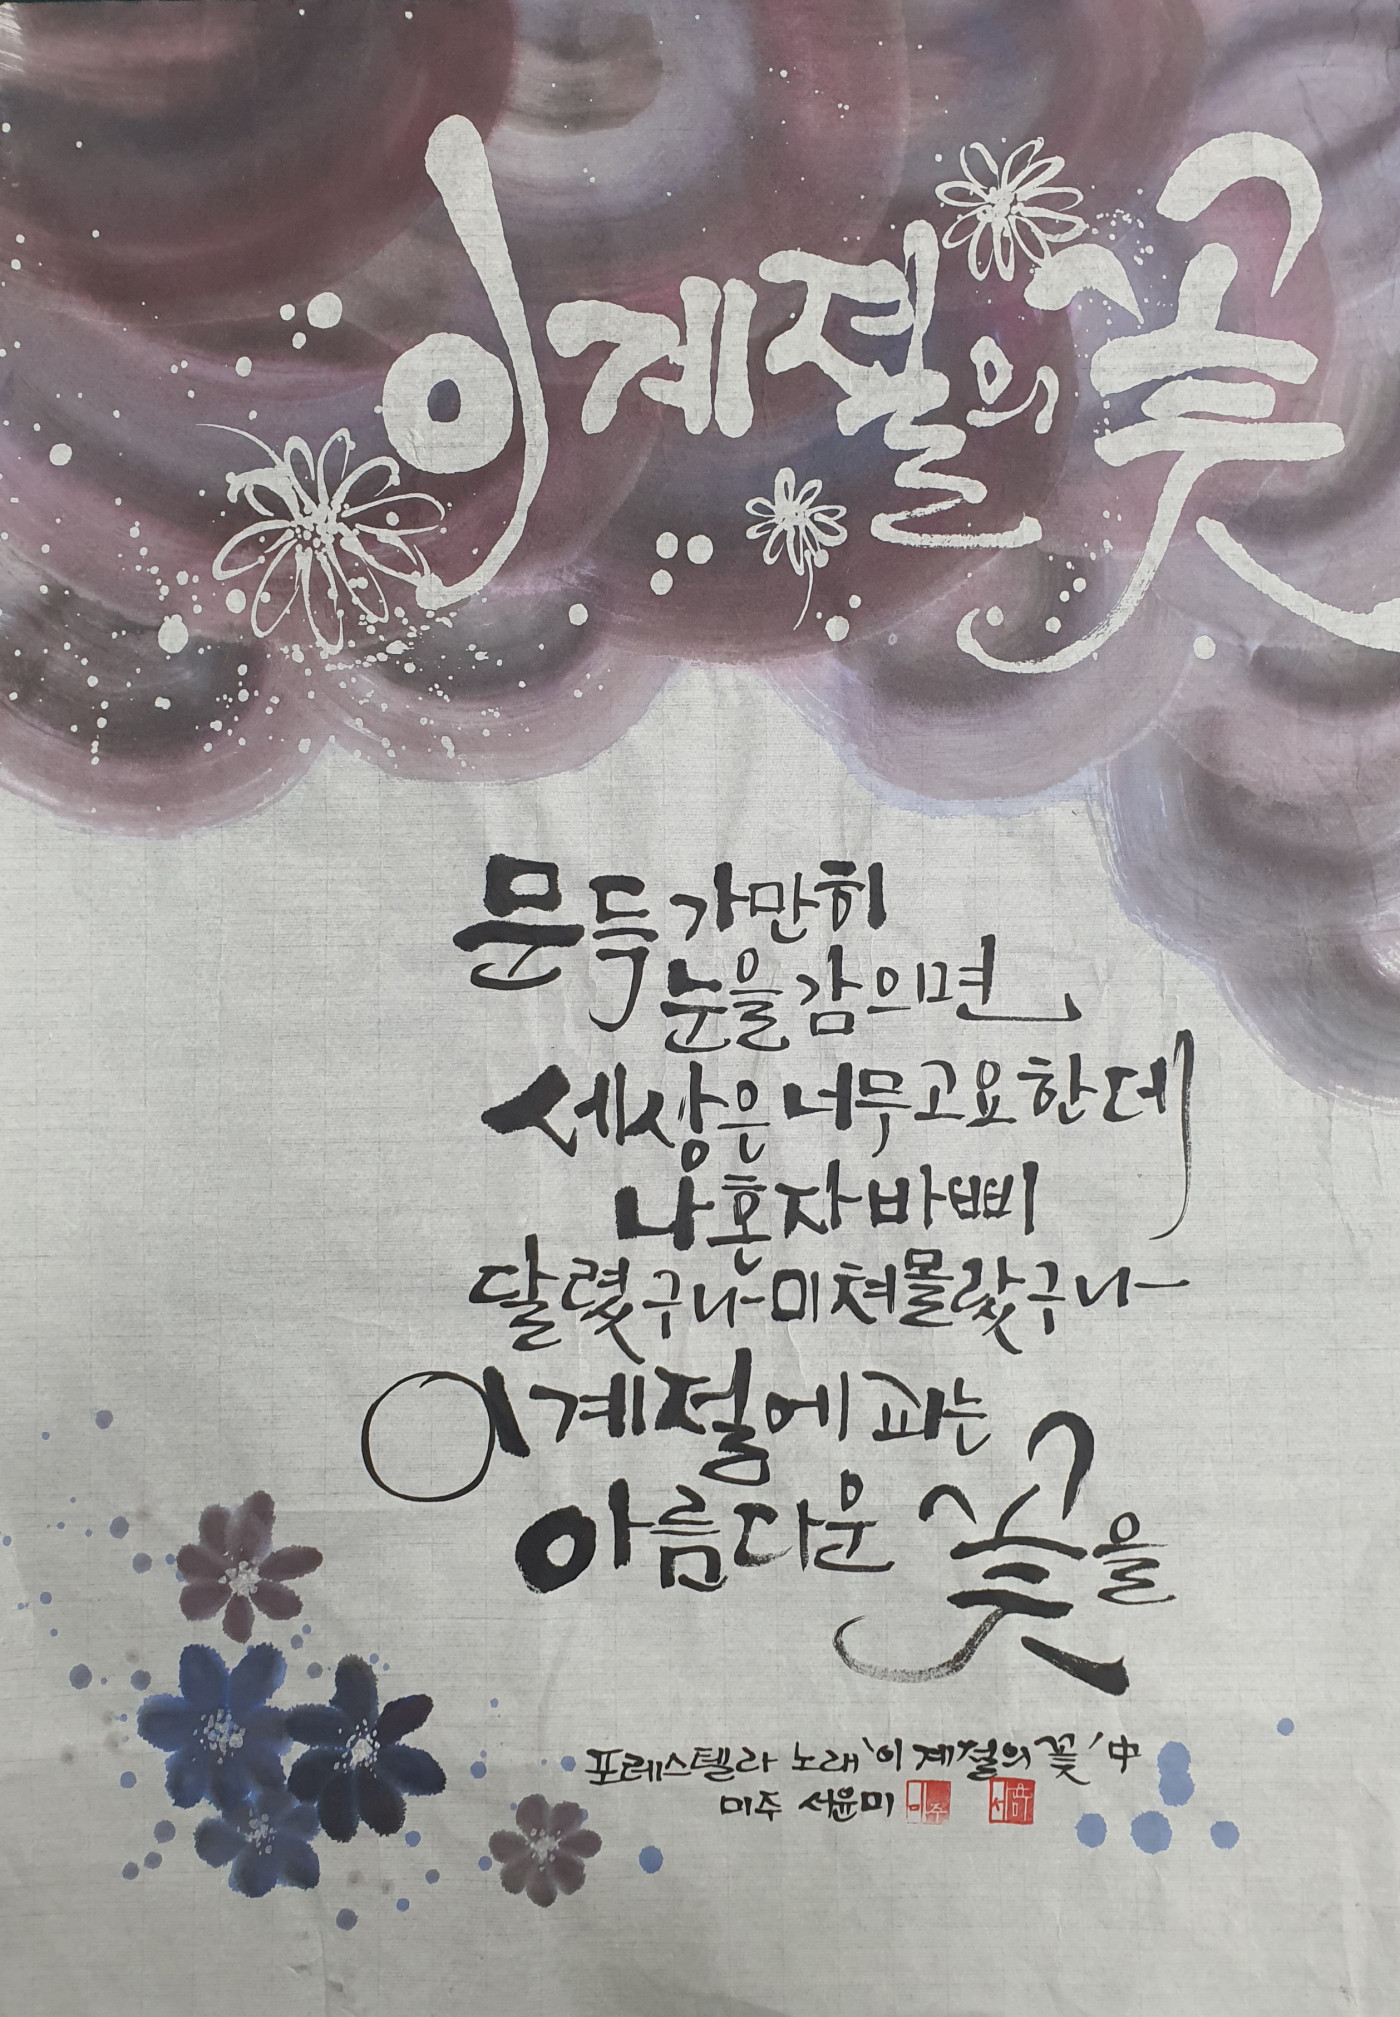 이 계절의 꽃
문득 가만히
눈을 감의면
세상은 너무 고요한데
나 혼자 바삐
달렸구나 미쳐 몰랐구나
이 계절에 피는
아름다운 꽃을
포레스텔라 노래 '이 계절의 꽃' 中
미주 서윤미